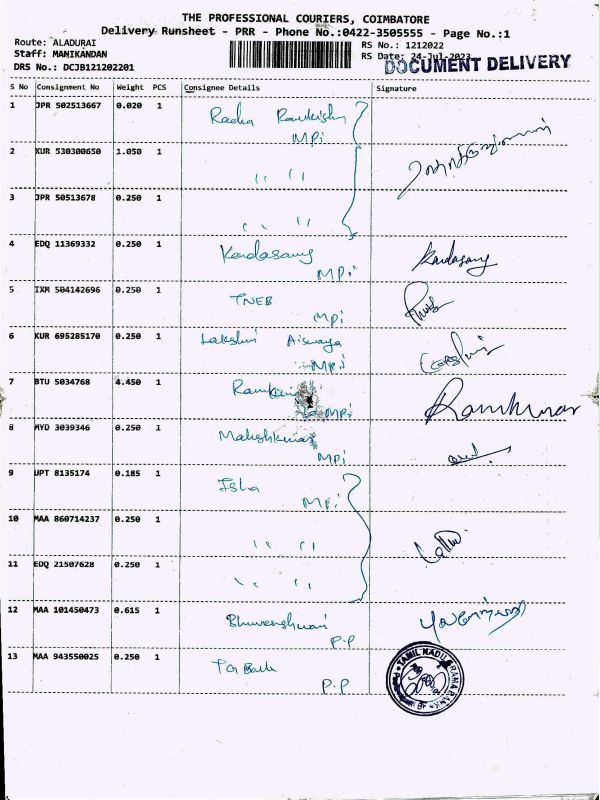 THE PROFESSIONAL COURIERS, COIMBATORE
Delivery Runsheet - PRR - Phone No.:0422-3505555 - Page No.:1
Route: ALADURAI RS No.: 1212022
Staff: MANIKANDAN RS Date: 24-Jul-2023
DRS No.: DCJB121202201 DOCUMENT DELIVERY
S No Consignment No Weight PCS Consignee Details Signature
1 JPR 502513667 0.020 1 Radha
MPi
2 KUR 530300650 1.050 1 " "
3 JPR 50513678 0.250 1
" "
4 EDQ 11369332 0.250 1 Kandasamy Kandasamy
MPi
5 IXM 504142696 0.250 1 TNEB
MPi
6 KUR 695285170 0.250 1 Lakshmi Aiswarya
MPi
7 BTU 5034768 4.450 1 Ramkumar Ramkumar
MPi
8 MYD 3039346 0.250 1 Maheshkumar
MPi
9 UPT 8135174 0.185 1 Isha
MPi
10 MAA 860714237 0.250 1
" "
11 EDQ 21507628 0.250 1 " "
12 MAA 101450473 0.615 1 Bhuvaneshwari
P.P
13 MAA 943550025 0.250 1 P.P
TAMIL NADU GRAMA BANK